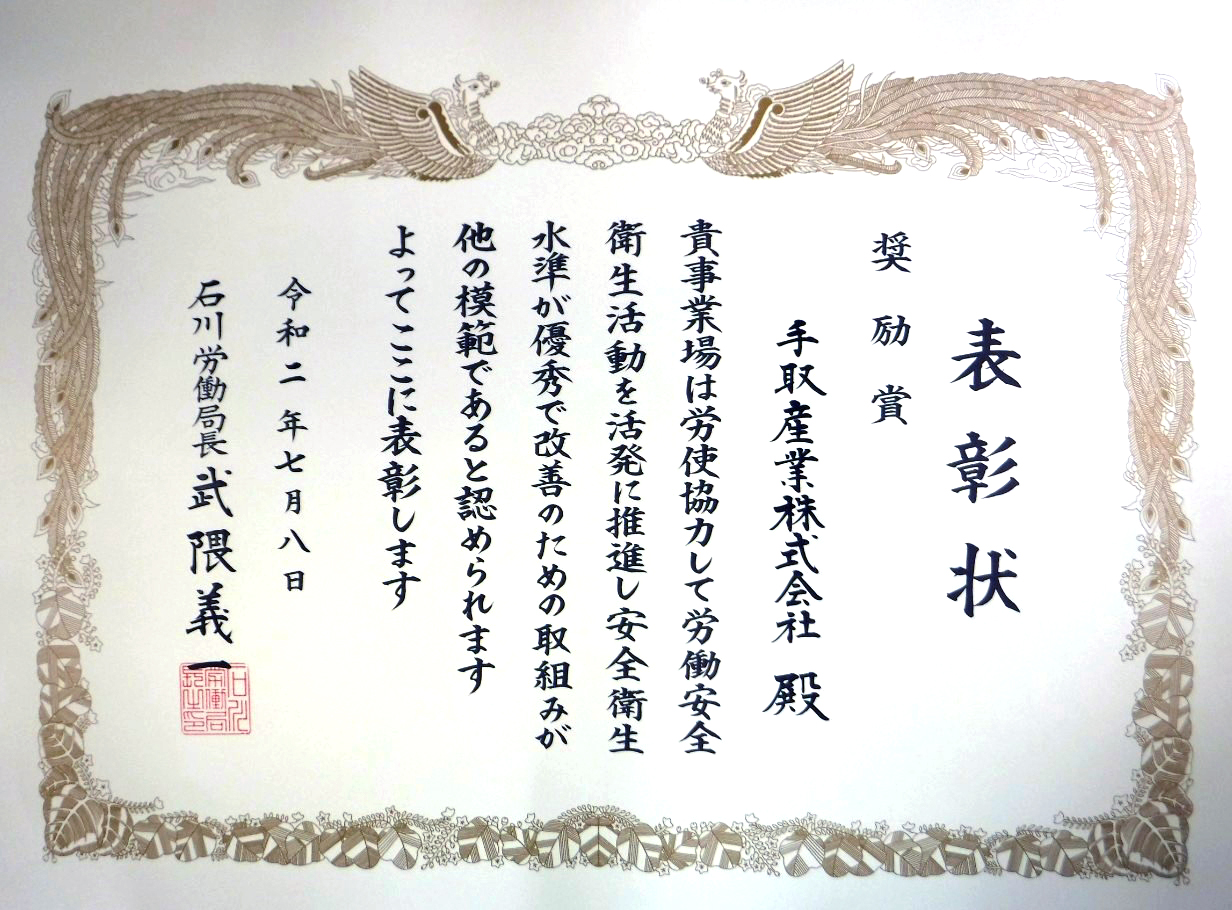 表彰状
奨励賞
手取産業株式会社 殿
貴事業場は労使協力して労働安全
衛生活動を活発に推進し安全衛生
水準が優秀で改善のための取組みが
他の模範であると認められます
よってここに表彰します
令和二年七月八日
石川労働局長 武隈義一
石川労働局長之印